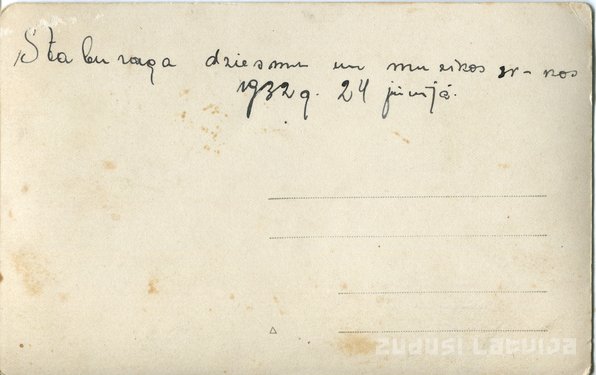 Staburaga dziesmu un muzikos sv-kos
1932 g. 24 jūnijā.
zudusi Latvija